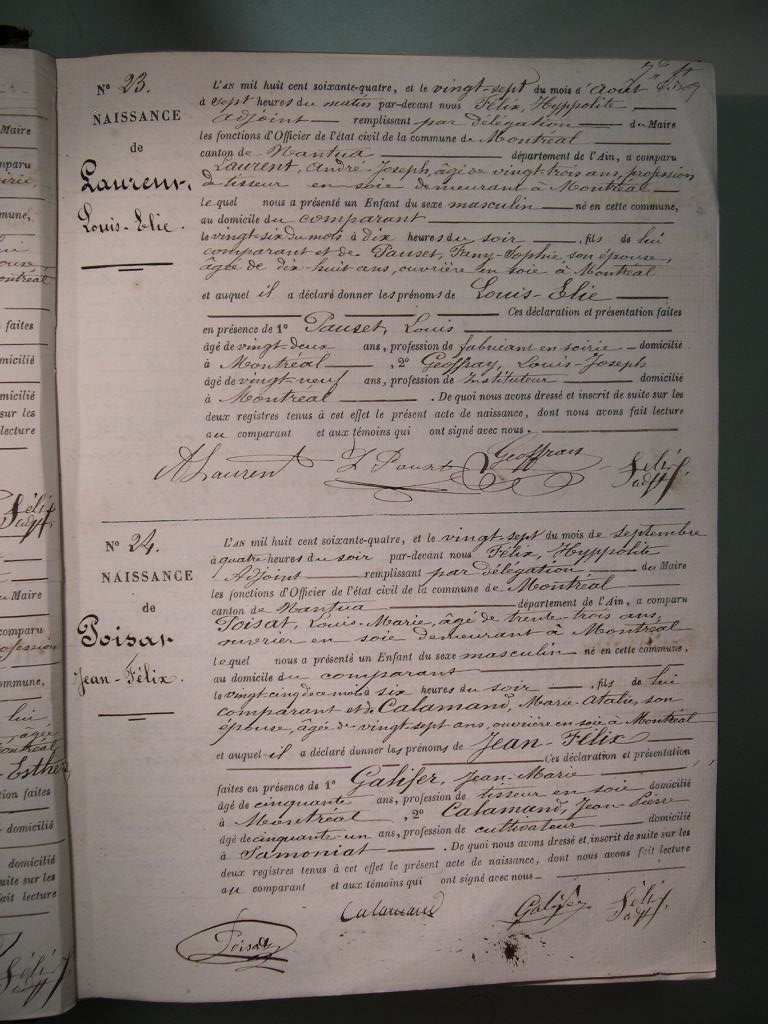 N° 23.
NAISSANCE
de
Laurent,
Louis-Elie.
L'AN mil huit cent soixante-quatre, et le vingt-sept du mois d'Août
à sept heures du matin par-devant nous Félix, Hyppolite
adjoint remplissant par délégation du Maire
les fonctions d'Officier de l'état civil de la commune de Montréal
canton de Nantua département de l'Ain, a comparu
Laurent, André-Joseph, âgé de vingt trois ans, profession
de tisseur en soie demeurant à Montréal
lequel nous a présenté un Enfant du sexe masculin né en cette commune,
au domicile du comparant
le vingt-six du mois à dix heures du soir, fils de lui
comparant et de Pauset, Fany-Sophie son épouse,
âgée de dix-huit ans, ouvrière en soie à Montréal
et auquel il a déclaré donner les prénoms de Louis-Elie
Ces déclaration et présentation faites
en présence de 1° Pauset, Louis
âgé de vingt-deux ans, profession de fabricant en soierie domicilié
à Montréal, 2° Geoffray, Louis-Joseph
âgé de vingt-neuf ans, profession de Instituteur domicilié
à Montréal. De quoi nous avons dressé et inscrit de suite sur les
deux registres tenus à cet effet le présent acte de naissance, dont nous avons fait lecture
au comparant et aux témoins qui ont signé avec nous.
A Laurent L Pauset Geoffray Félix adjt
N° 24.
NAISSANCE
de
Poisat
Jean-Félix.
L'AN mil huit cent soixante-quatre, et le vingt-sept du mois de septembre
à quatre heures du soir par-devant nous Félix, Hyppolite
Adjoint remplissant par délégation du Maire
les fonctions d'Officier de l'état civil de la commune de Montréal
canton de Nantua département de l'Ain, a comparu
Poisat, Louis-Marie, âgé de trente-trois ans,
ouvrier en soie demeurant à Montréal
lequel nous a présenté un Enfant du sexe masculin né en cette commune,
au domicile du comparant
le vingt cinq de ce mois à six heures du soir, fils de lui
comparant et de Calamand, Marie-Atalie, son
épouse, âgée de vingt-sept ans, ouvrière en soie à Montréal
et auquel il a déclaré donner les prénoms de Jean-Félix
Ces déclaration et présentation
faites en présence de 1° Galifer, Jean-Marie
âgé de cinquante ans, profession de tisseur en soie domicilié
à Montréal, 2° Calamand, Jean-Pierre
âgé de cinquante-un ans, profession de cultivateur domicilié
à Samoniat. De quoi nous avons dressé et inscrit de suite sur les
deux registres tenus à cet effet le présent acte de naissance, dont nous avons fait lecture
au comparant et aux témoins qui ont signé avec nous
Calamand Galifer Félix adjt
Poisat